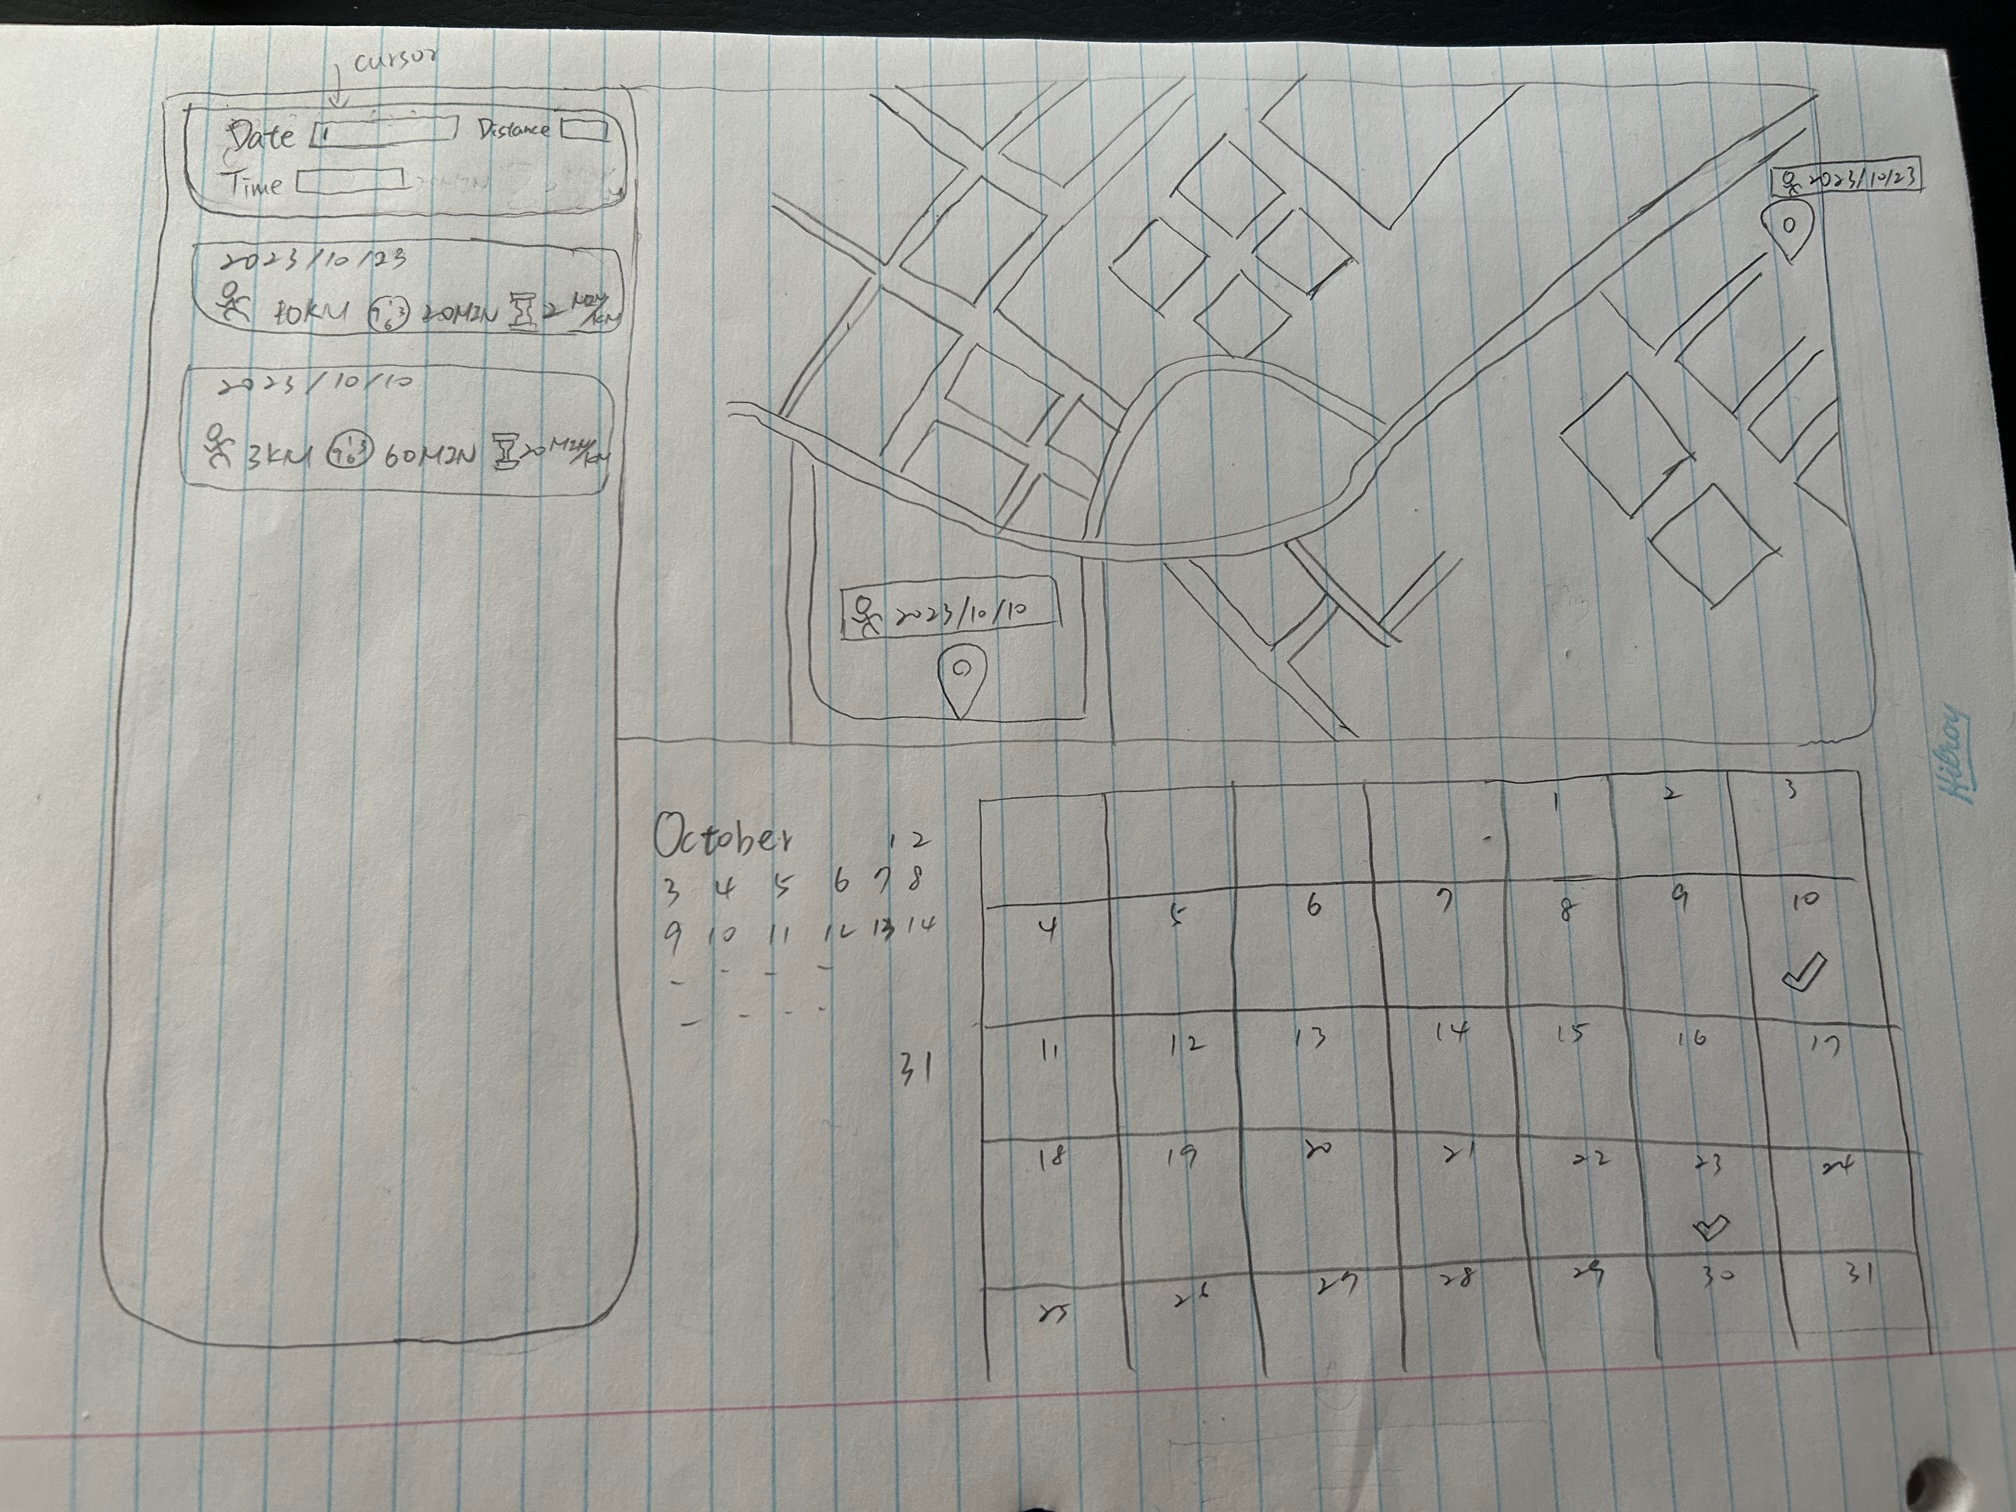 cursor
Date Distance
Time
2023/10/23
10KM 20MIN 2 MIN/KM
2023/10/10
3KM 60MIN 20 MIN/KM
2023/10/23
2023/10/10
Hilroy
October 1 2
3 4 5 6 7 8
9 10 11 12 13 14
31
1 2 3
4 5 6 7 8 9 10
11 12 13 14 15 16 17
18 19 20 21 22 23 24
25 26 27 28 29 30 31